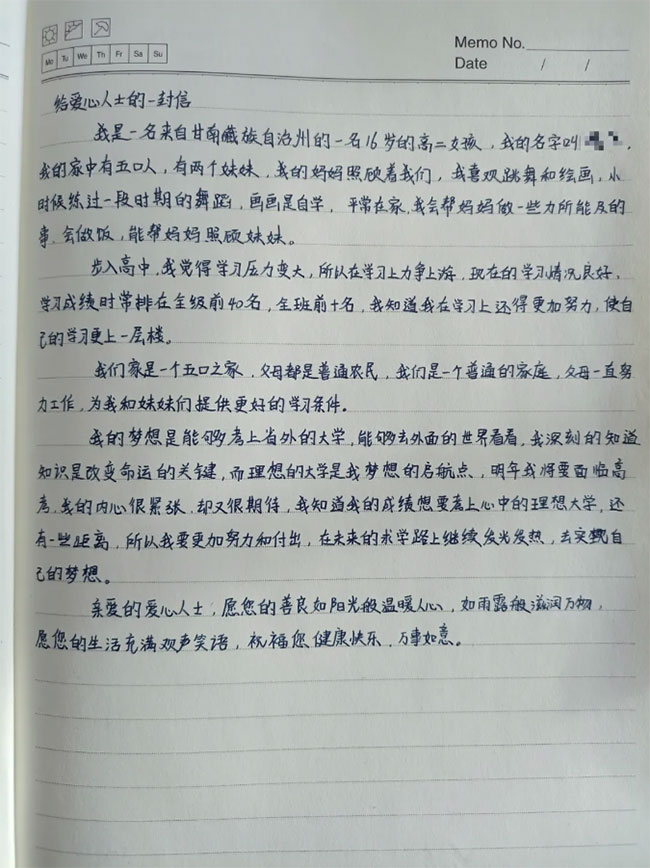 Memo No.
Mo Tu We Th Fr Sa Su
Date / /
给爱心人士的一封信
我是一名来自甘南藏族自治州的一名16岁的高二女孩，我的名字叫
我的家中有五口人，有两个妹妹，我的妈妈照顾着我们，我喜欢跳舞和绘画，小
时候练过一段时期的舞蹈，画画是自学，平常在家，我会帮妈妈做一些力所能及的
事，会做饭，能帮妈妈照顾妹妹。
步入高中，我觉得学习压力变大，所以在学习上力争上游，现在的学习情况良好，
学习成绩时常排在全级前40名，全班前十名，我知道我在学习上还得更加努力，使自
己的学习更上一层楼。
我们家是一个五口之家，父母都是普通农民，我们是一个普通的家庭，父母一直努
力工作，为我和妹妹们提供更好的学习条件。
我的梦想是能够考上省外的大学，能够去外面的世界看看，我深刻的知道
知识是改变命运的关键，而理想的大学是我梦想的启航点，明年我将要面临高
考，我的内心很紧张，却又很期待，我知道我的成绩想要考上心中的理想大学，还
有一些距离，所以我要更加努力和付出，在未来的求学路上继续发光发热，去实现自
己的梦想。
亲爱的爱心人士，愿您的善良如阳光般温暖人心，如雨露般滋润万物，
愿您的生活充满欢声笑语，祝福您健康快乐，万事如意。